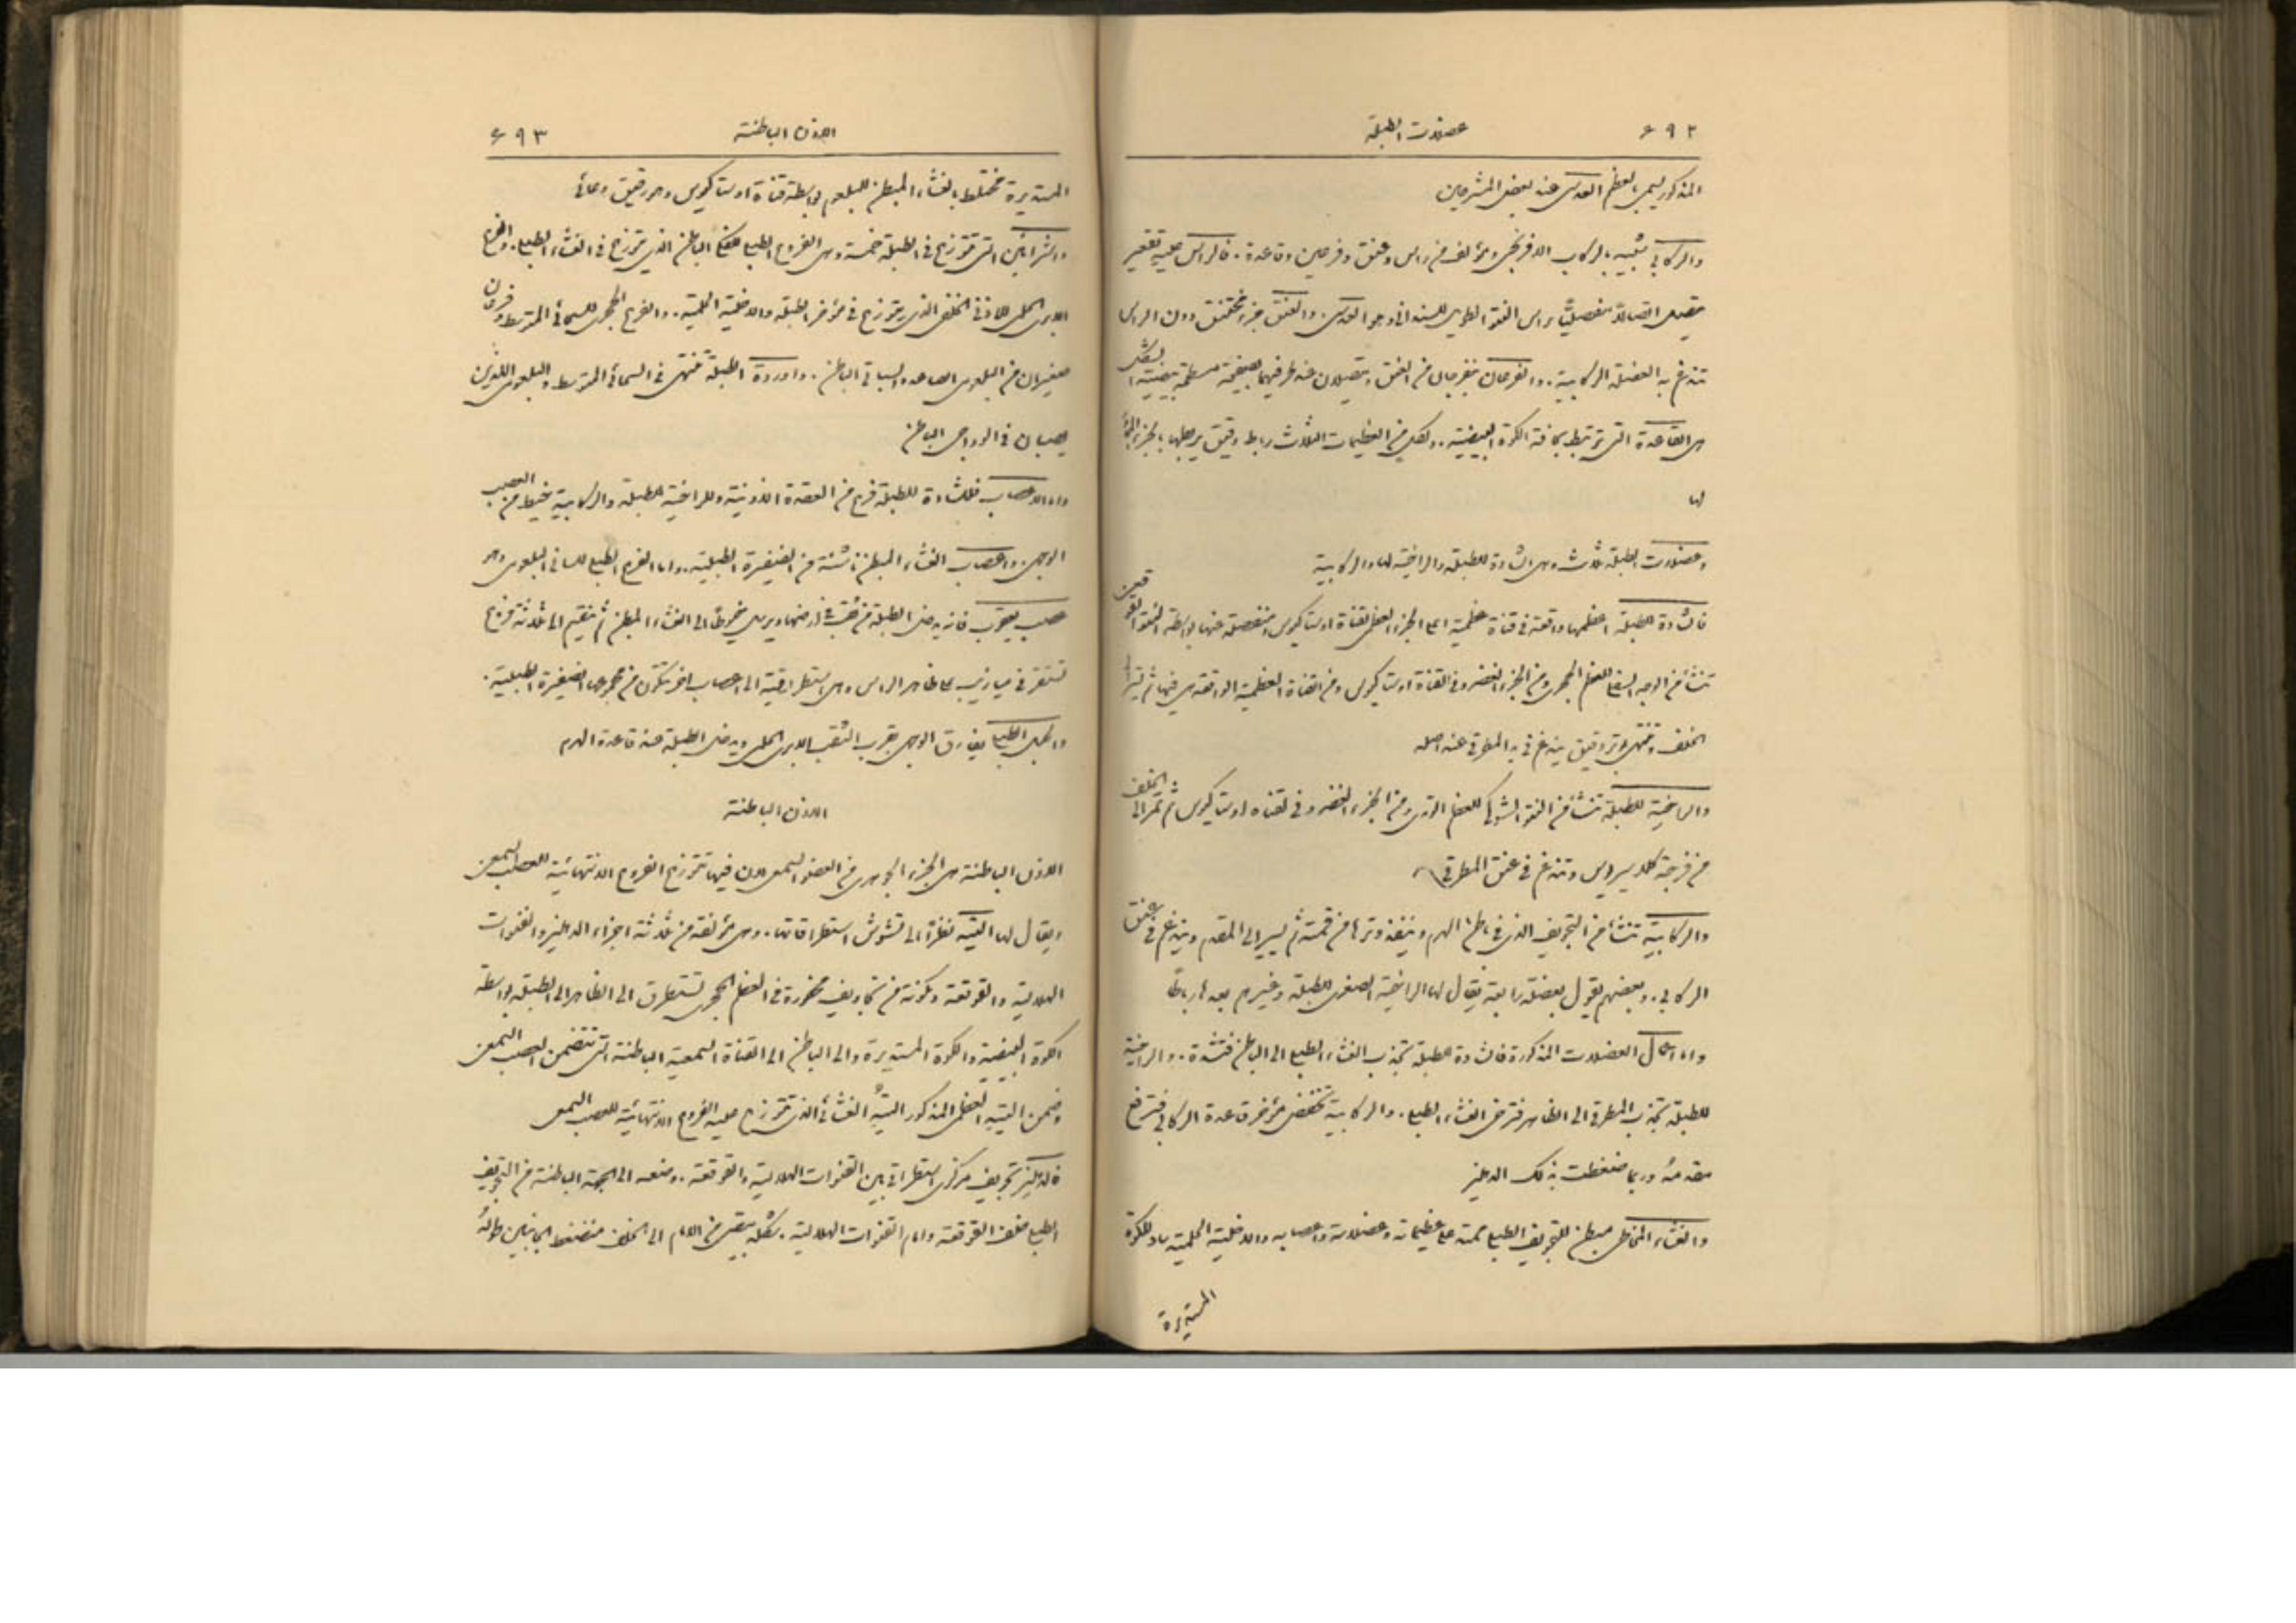 ٤٩٢ عضلات الطبلة
المذكور يسمى بالعظم العدسي عند بعض المشرحين
والركابي شبيه بالركاب الافرنجي ومؤلف من راس وعنق وفرعين وقاعدة. فالراس عليه تقعير
متصل اتصالاً مفصليًا براس النتوء الطويل للسنداني وهو العدسي. والعنق جزء مختنق دون الراس
تندغم به العضلة الركابية. والفرعان ينفرجان من العنق ويتصلان عند طرفيهما بصفيحة مسطحة بيضية الشكل
هي القاعدة التي ترتبط بحافة الكوة البيضية. ولكل من العظيمات الثلاث رباط دقيق يربطها بالجزء
لها
وعضلات الطبلة ثلاث وهي الشادة للطبلة والراخية لها والركابية
فالشادة للطبلة اعظمها واقعة في قناة عظمية اعلى الجزء العظمي لقناة اوستاكيوس ومنفصلة عنها بواسطة النتوء القوقعي
تنشأ من الوجه السفلي للعظم الحجري ومن الجزء الغضروفي لقناة اوستاكيوس ومن القناة العظمية الواقعة هي فيها ثم تسير الى
الخلف وتنتهي بوتر دقيق يندغم في يد المطرقي عند اصله
والراخية للطبلة تنشأ من النتوء الشوكي للعظم الوتدي ومن الجزء الغضروفي لقناة اوستاكيوس ثم تمر الى الخلف
من فرجة كلاسيروس وتندغم في عنق المطرقي
والركابية تنشأ من التجويف الذي في باطن الهرم وينفذ وترها من قمته ثم يسير الى المقدم ويندغم في عنق
الركابي. وبعضهم يقول بعضلة رابعة يقال لها الراخية الصغرى للطبلة وغيرهم يعدها رباطًا
واما اعمال العضلات المذكورة فالشادة للطبلة تجذب الغشاء الطبلي الى الباطن فتشده. والراخية
للطبلة تجذب المطرقي الى الظاهر فترخي الغشاء الطبلي. والركابية تخفض مؤخر قاعدة الركابي فترفع
مقدمهُ وربما ضغطت بذلك الدهليز
والغشاء المخاطي مبطن للتجويف الطبلي ممتد على عظيماته وعضلاته واعصابه والداخلية الحلمية ساد للكوة
المستديرة
الاذن الباطنة ٤٩٣
المستديرة مختلط بالغشاء المبطن للبلعوم بواسطة قناة اوستاكيوس وهو رقيق وعائي
والشرايين التي تتوزع في الطبلة خمسة وهي الفرع الطبلي للفكي الباطن الذي يتوزع في الغشاء الطبلي. والفرع
الابري الحلمي للاذني الخلفي الذي يتوزع في مؤخر الطبلة والداخلية الحلمية. والفرع الحجري للسحائي المتوسط وفرعان
صغيران من البلعومي الصاعد والسباتي الباطن. واوردة الطبلة تنتهي في السحائي المتوسط والبلعومي اللذين
يصبان في الوداجي الباطن
واما الاعصاب فللشادة للطبلة فرع من العقدة الاذنية وللراخية للطبلة والركابية خيط من العصب
الوجهي. واعصاب الغشاء المبطن ناشئة من الضفيرة الطبلية. واما الفرع الطبلي للساني البلعومي وهو
عصب يعقوب فانه يدخل الطبلة من ثقب في ارضها ويرسل خيوطًا الى الغشاء المبطن ثم ينقسم الى ثلاثة فروع
تستقر في ميازيب على ظاهر الراس وهي استطراقية الى اعصاب اخر تتكون من مجموعها الضفيرة الطبلية.
والحبل الطبلي يفارق الوجهي بقرب الثقب الابري الحلمي ويدخل الطبلة عند قاعدة الهرم
الاذن الباطنة
الاذن الباطنة هي الجزء الجوهري من العضو السمعي لان فيها تتوزع الفروع الانتهائية للعصب السمعي
ويقال لها التيه نظرًا الى تشوش استطراقاتها. وهي مؤلفة من ثلاثة اجزاء الدهليز والقنوات
الهلالية والقوقعة ومكونة من تجاويف محفورة في العظم الحجري تستطرق الى الظاهر الى الطبلة بواسطة
الكوة البيضية والكوة المستديرة والى الباطن الى القناة السمعية الباطنة التي تتضمن العصب السمعي
وضمن التيه العظمي المذكور التيهُ الغشائي الذي تتوزع عليه الفروع الانتهائية للعصب السمعي
فالدهليز تجويف مركزي استطراقي بين القنوات الهلالية والقوقعة. وضعه الى الجهة الباطنة من التجويف
الطبلي خلف القوقعة وامام القنوات الهلالية. شكله بيضي من الامام الى الخلف منضغط الجانبين طولهُ